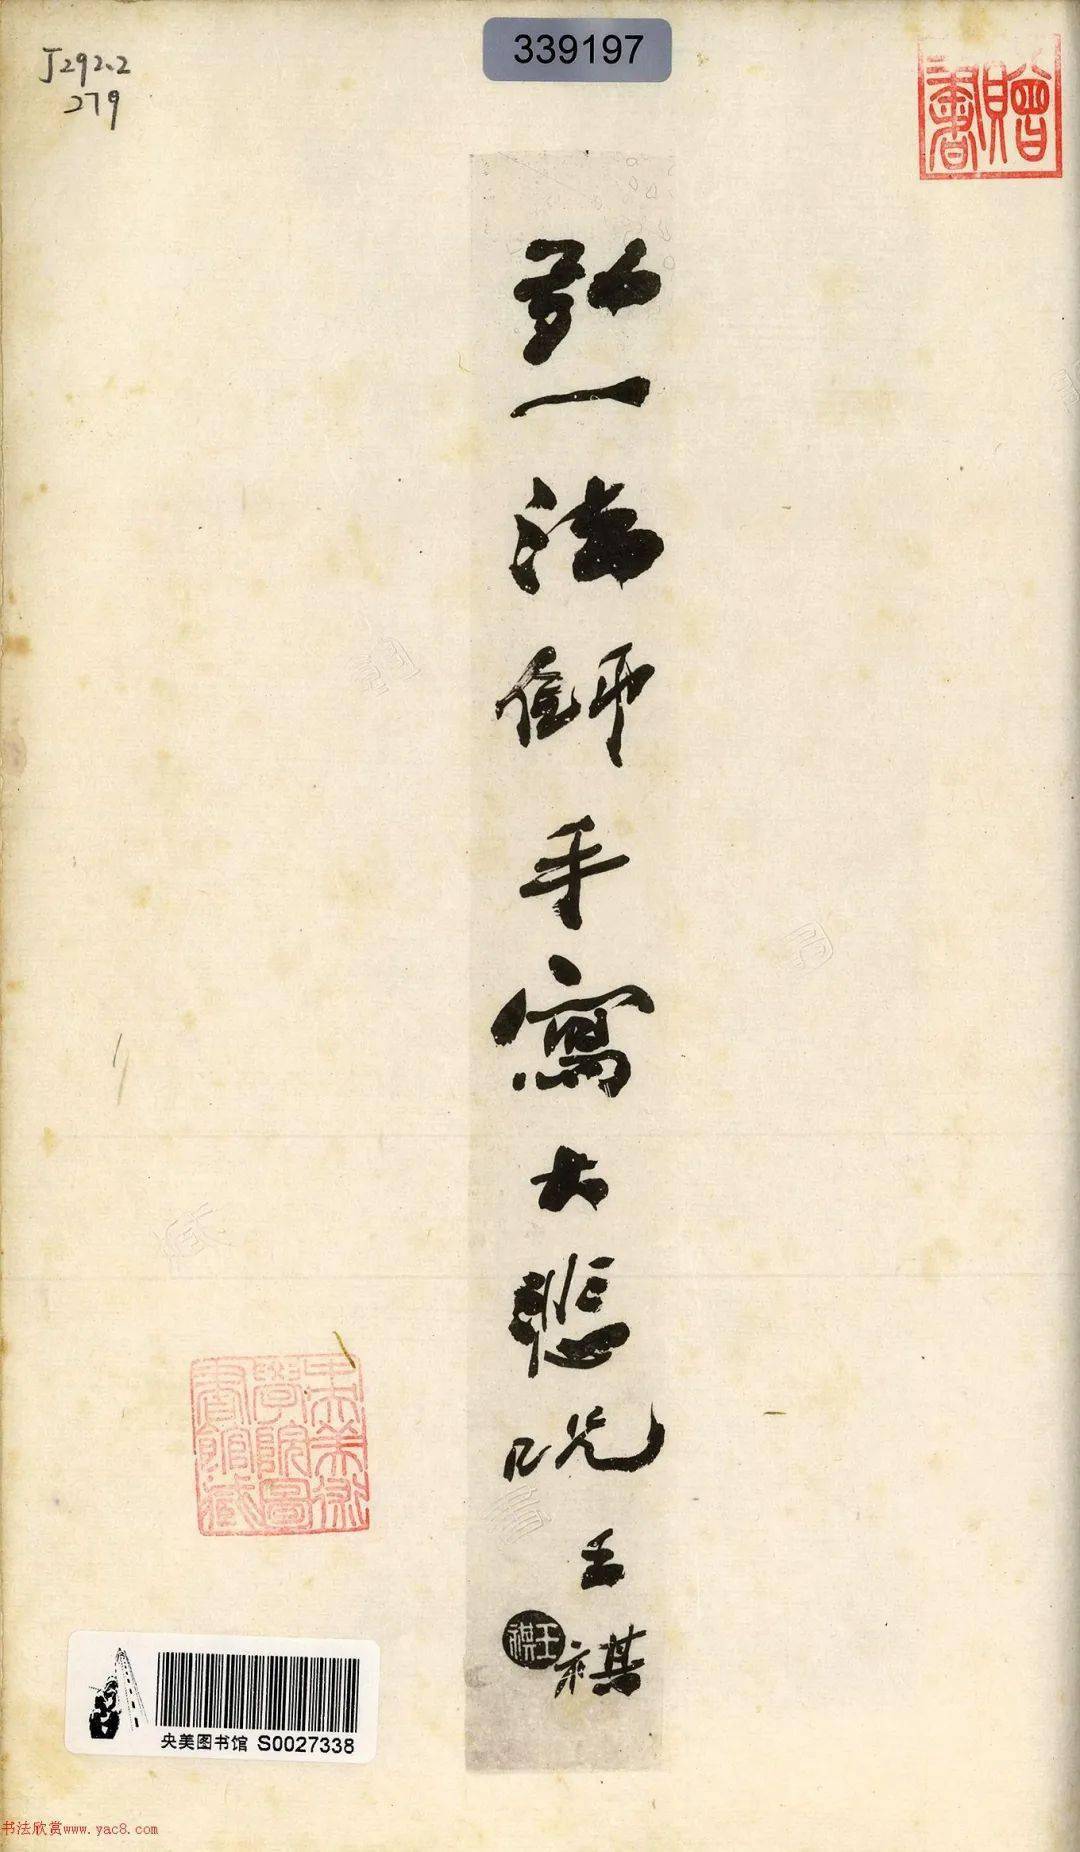 J292.2
279
339197
贈書
弘一法師手寫大悲咒
王祺
王祺
中央美術學院圖書館藏
央美图书馆 S0027338
书法欣赏www.yac8.com